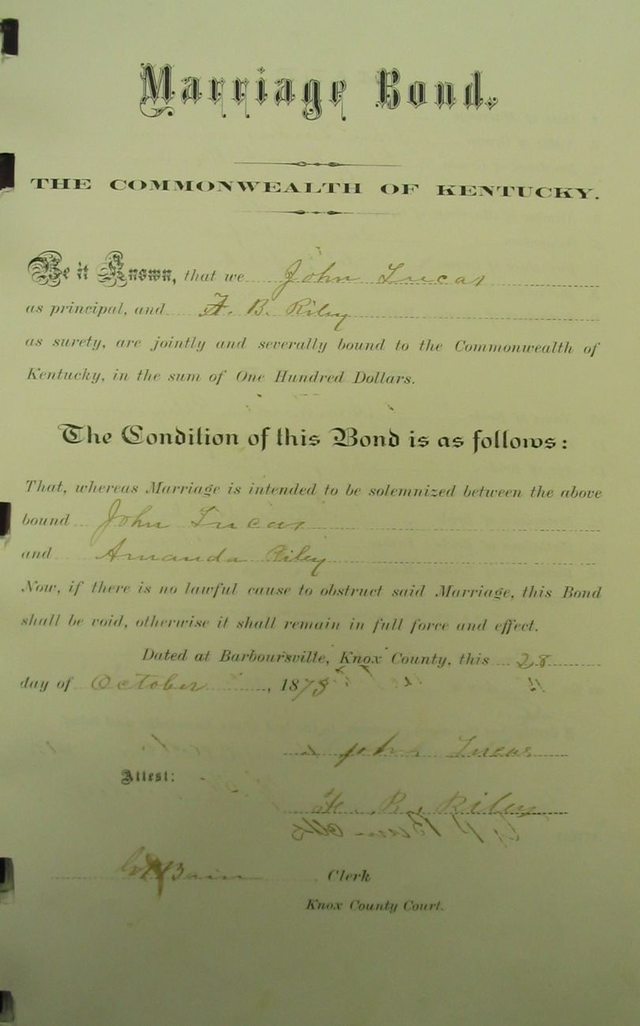 Marriage Bond.
THE COMMONWEALTH OF KENTUCKY.
Be it Known, that we John Lucas
as principal, and F. B. Riley
as surety, are jointly and severally bound to the Commonwealth of
Kentucky, in the sum of One Hundred Dollars.
The Condition of this Bond is as follows:
That, whereas Marriage is intended to be solemnized between the above
bound John Lucas
and Amanda Riley
Now, if there is no lawful cause to obstruct said Marriage, this Bond
shall be void, otherwise it shall remain in full force and effect.
Dated at Barboursville, Knox County, this 28
day of October, 1873
John Lucas
Attest:
Riley
Bain Clerk
Knox County Court.